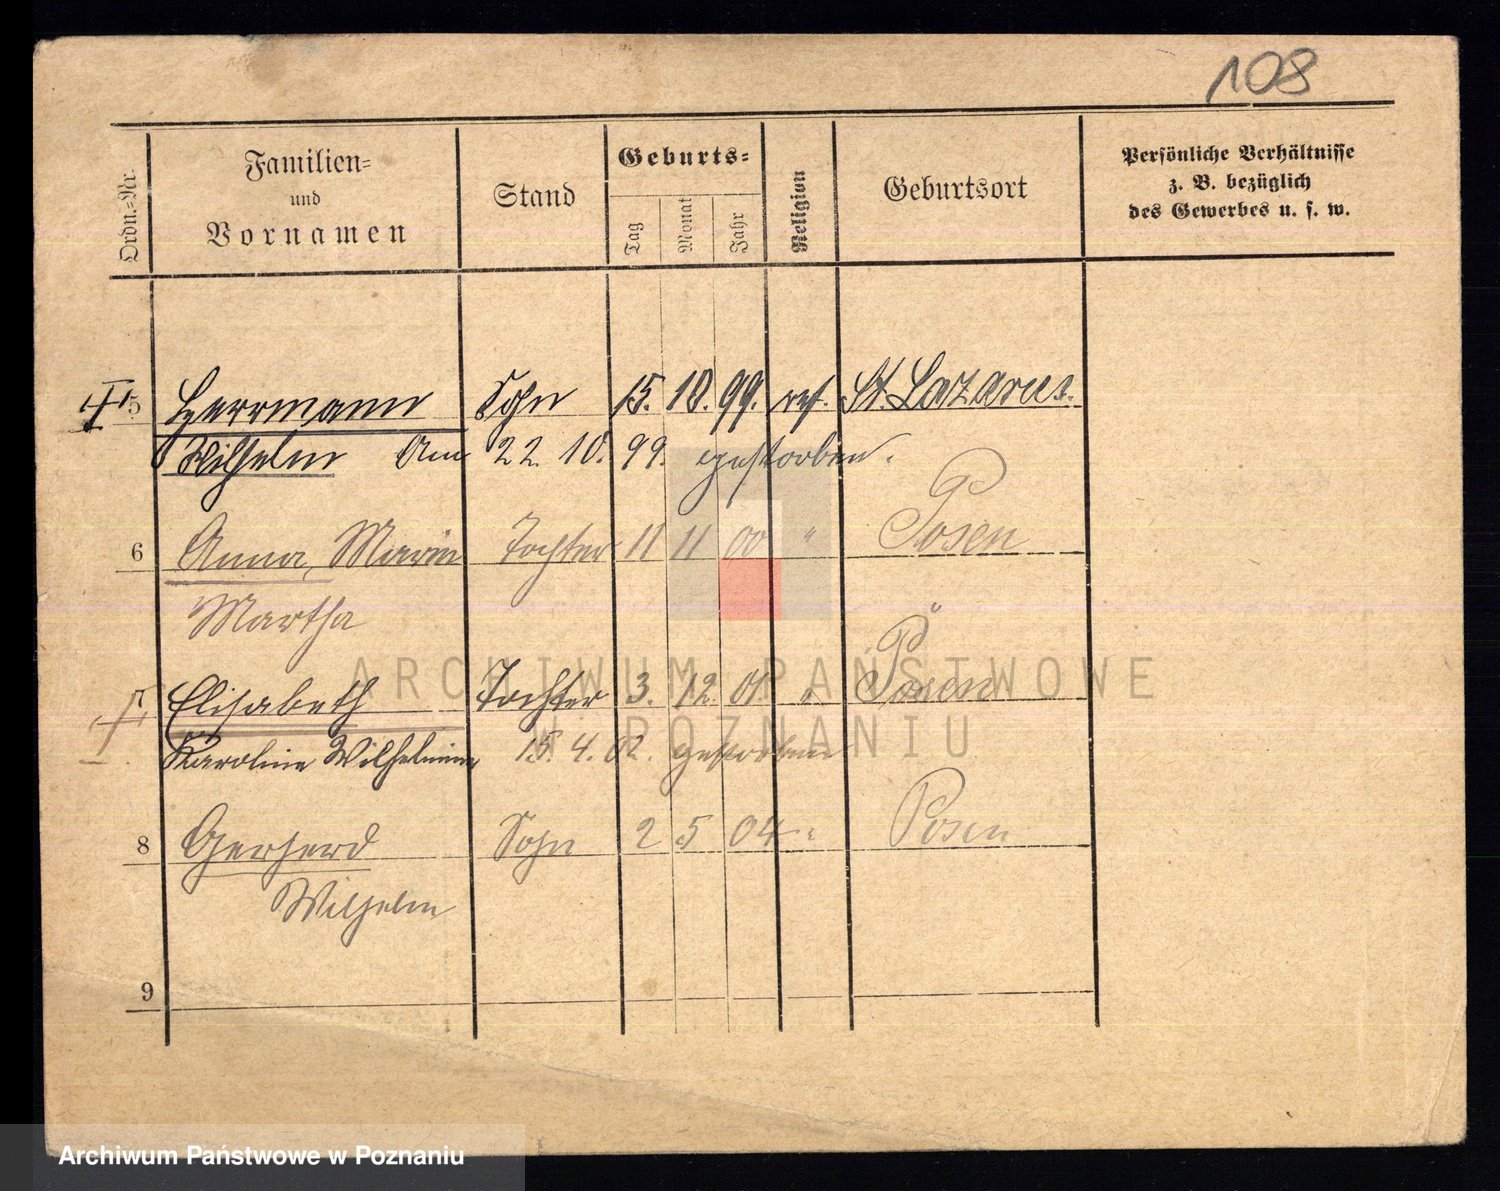 108
Ordn.-Nr.
Familien-
und
Vornamen
Stand
Geburts-
Tag
Monat
Jahr
Religion
Geburtsort
Persönliche Verhältnisse
z. B. bezüglich
des Gewerbes u. s. w.
5 Herrmann Sohn 15. 10. 99. ref. St. Lazarus.
Wilhelm Am 22. 10. 99. gestorben.
6 Anna, Maria Tochter 11 11 00 " Posen
Martha
7 Elisabeth Tochter 3. 12. 01 " Posen
Karoline Wilhelmine 15. 4. 02. gestorben
8 Gerhard Sohn 2 5 04 " Posen
Wilhelm
9
ARCHIWUM PAŃSTWOWE
W POZNANIU
Archiwum Państwowe w Poznaniu